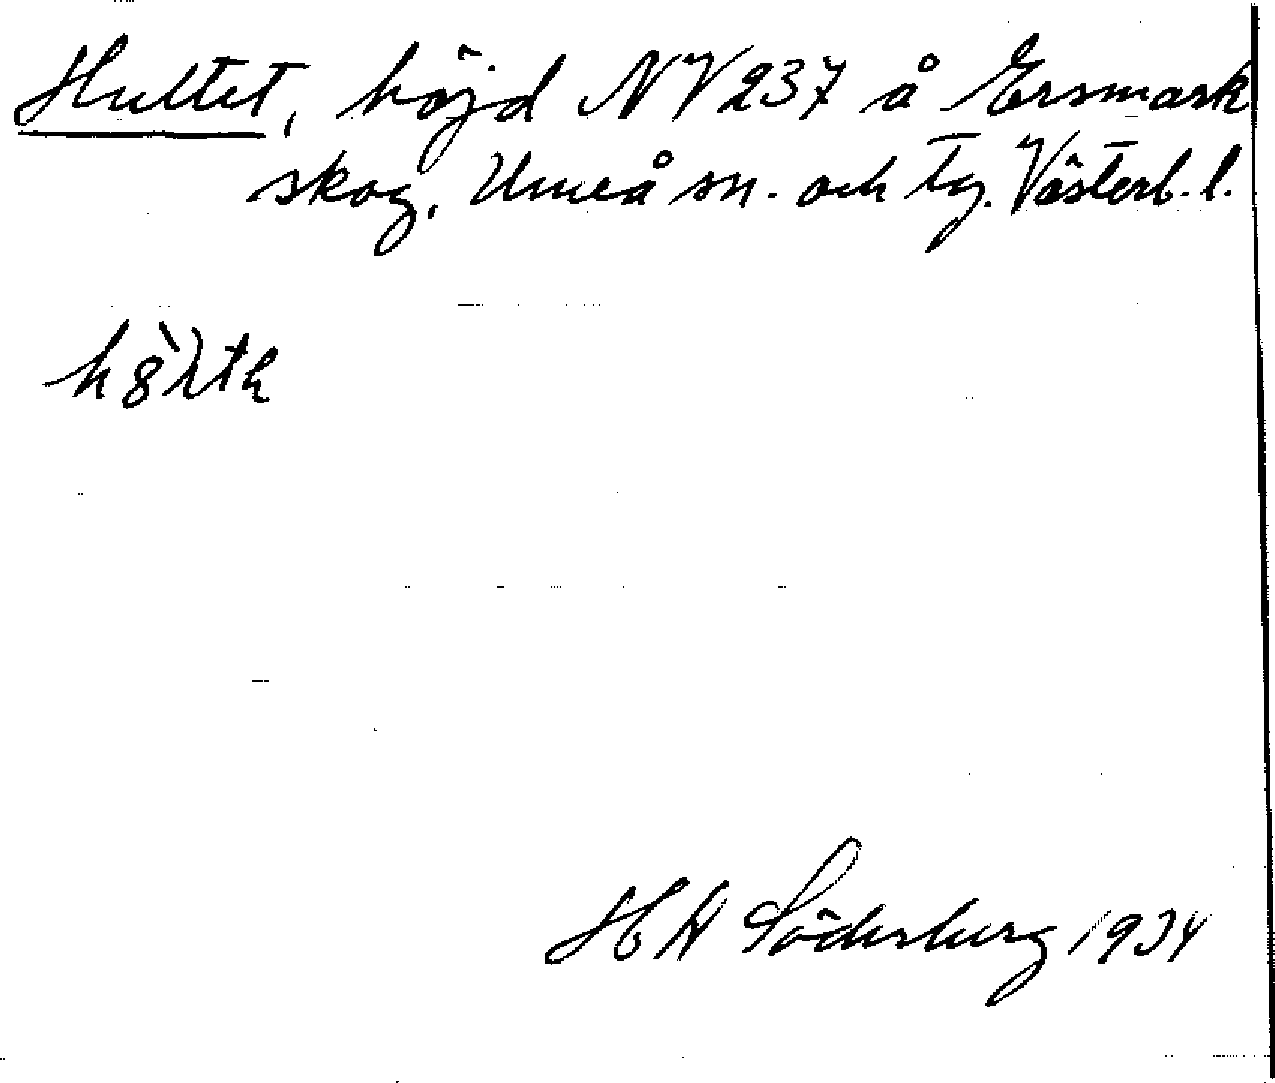 Hultet, höjd NV 237 å Ersmark
skog, Umeå sn. och tg. Västerb. l.
H A Söderberg 1934